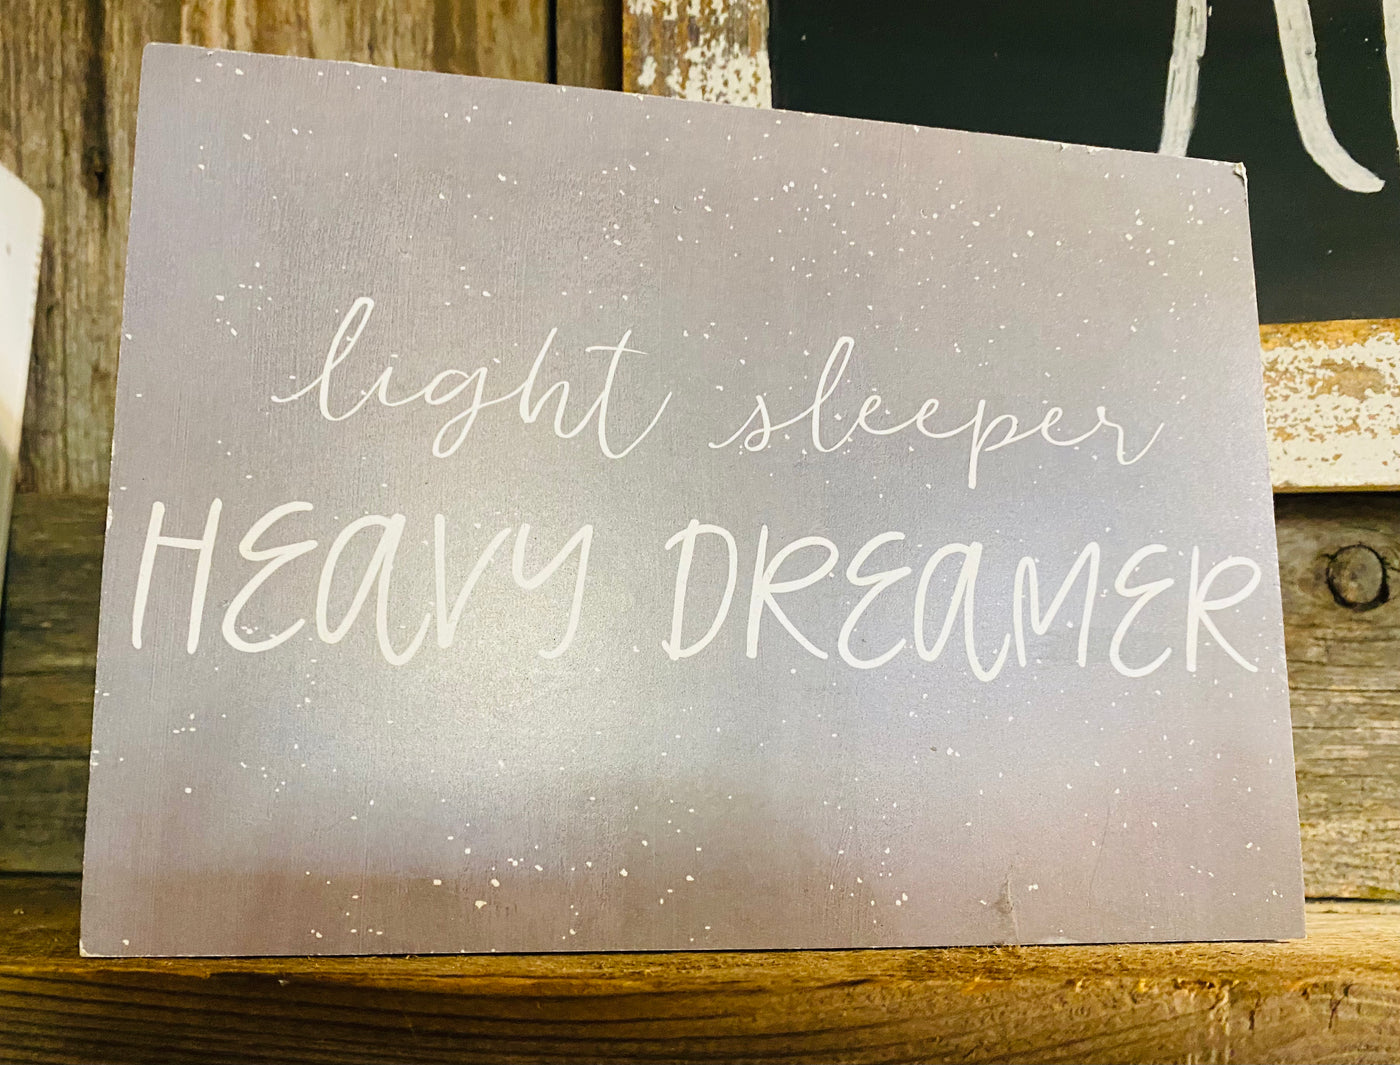 light sleeper
HEAVY DREAMER